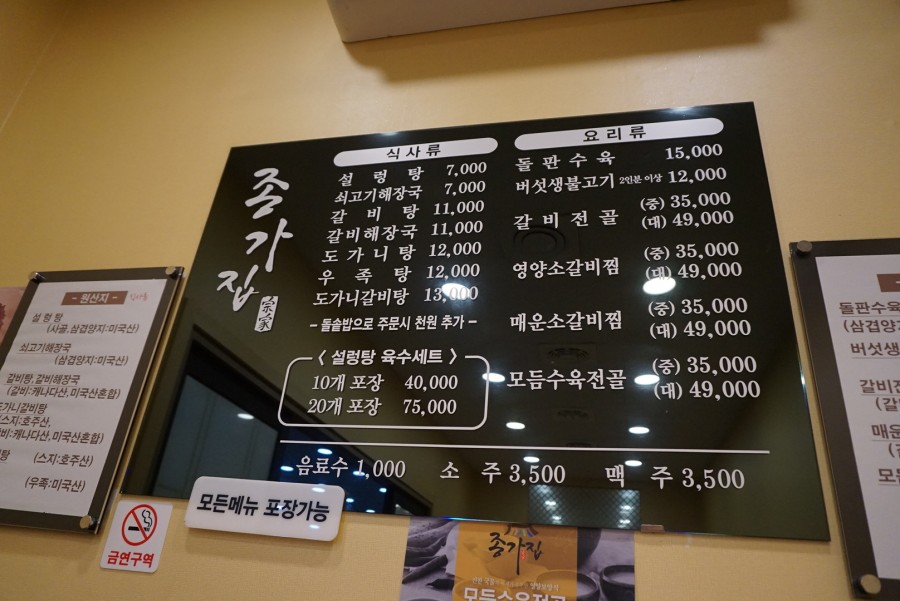 종가집
宗家
식사류
설렁탕 7,000
쇠고기해장국 7,000
갈비탕 11,000
갈비해장국 11,000
도가니탕 12,000
우족탕 12,000
도가니갈비탕 13,000
- 돌솥밥으로 주문시 천원 추가 -
< 설렁탕 육수세트 >
10개 포장 40,000
20개 포장 75,000
요리류
돌판수육 15,000
버섯생불고기 2인분 이상 12,000
갈비전골 (중) 35,000
(대) 49,000
영양소갈비찜 (중) 35,000
(대) 49,000
매운소갈비찜 (중) 35,000
(대) 49,000
모듬수육전골 (중) 35,000
(대) 49,000
음료수 1,000 소주 3,500 맥주 3,500
- 원산지 -
설렁탕
(사골, 삼겹양지:미국산)
쇠고기해장국
(삼겹양지:미국산)
갈비탕, 갈비해장국
(갈비:캐나다산, 미국산혼합)
도가니갈비탕
(스지:호주산,
갈비:캐나다산, 미국산혼합)
(스지:호주산)
(우족:미국산)
금연구역
모든메뉴 포장가능
종가집
모듬수육전골
돌판수육
(삼겹양지:
버섯생불
갈비전
(갈비
매운